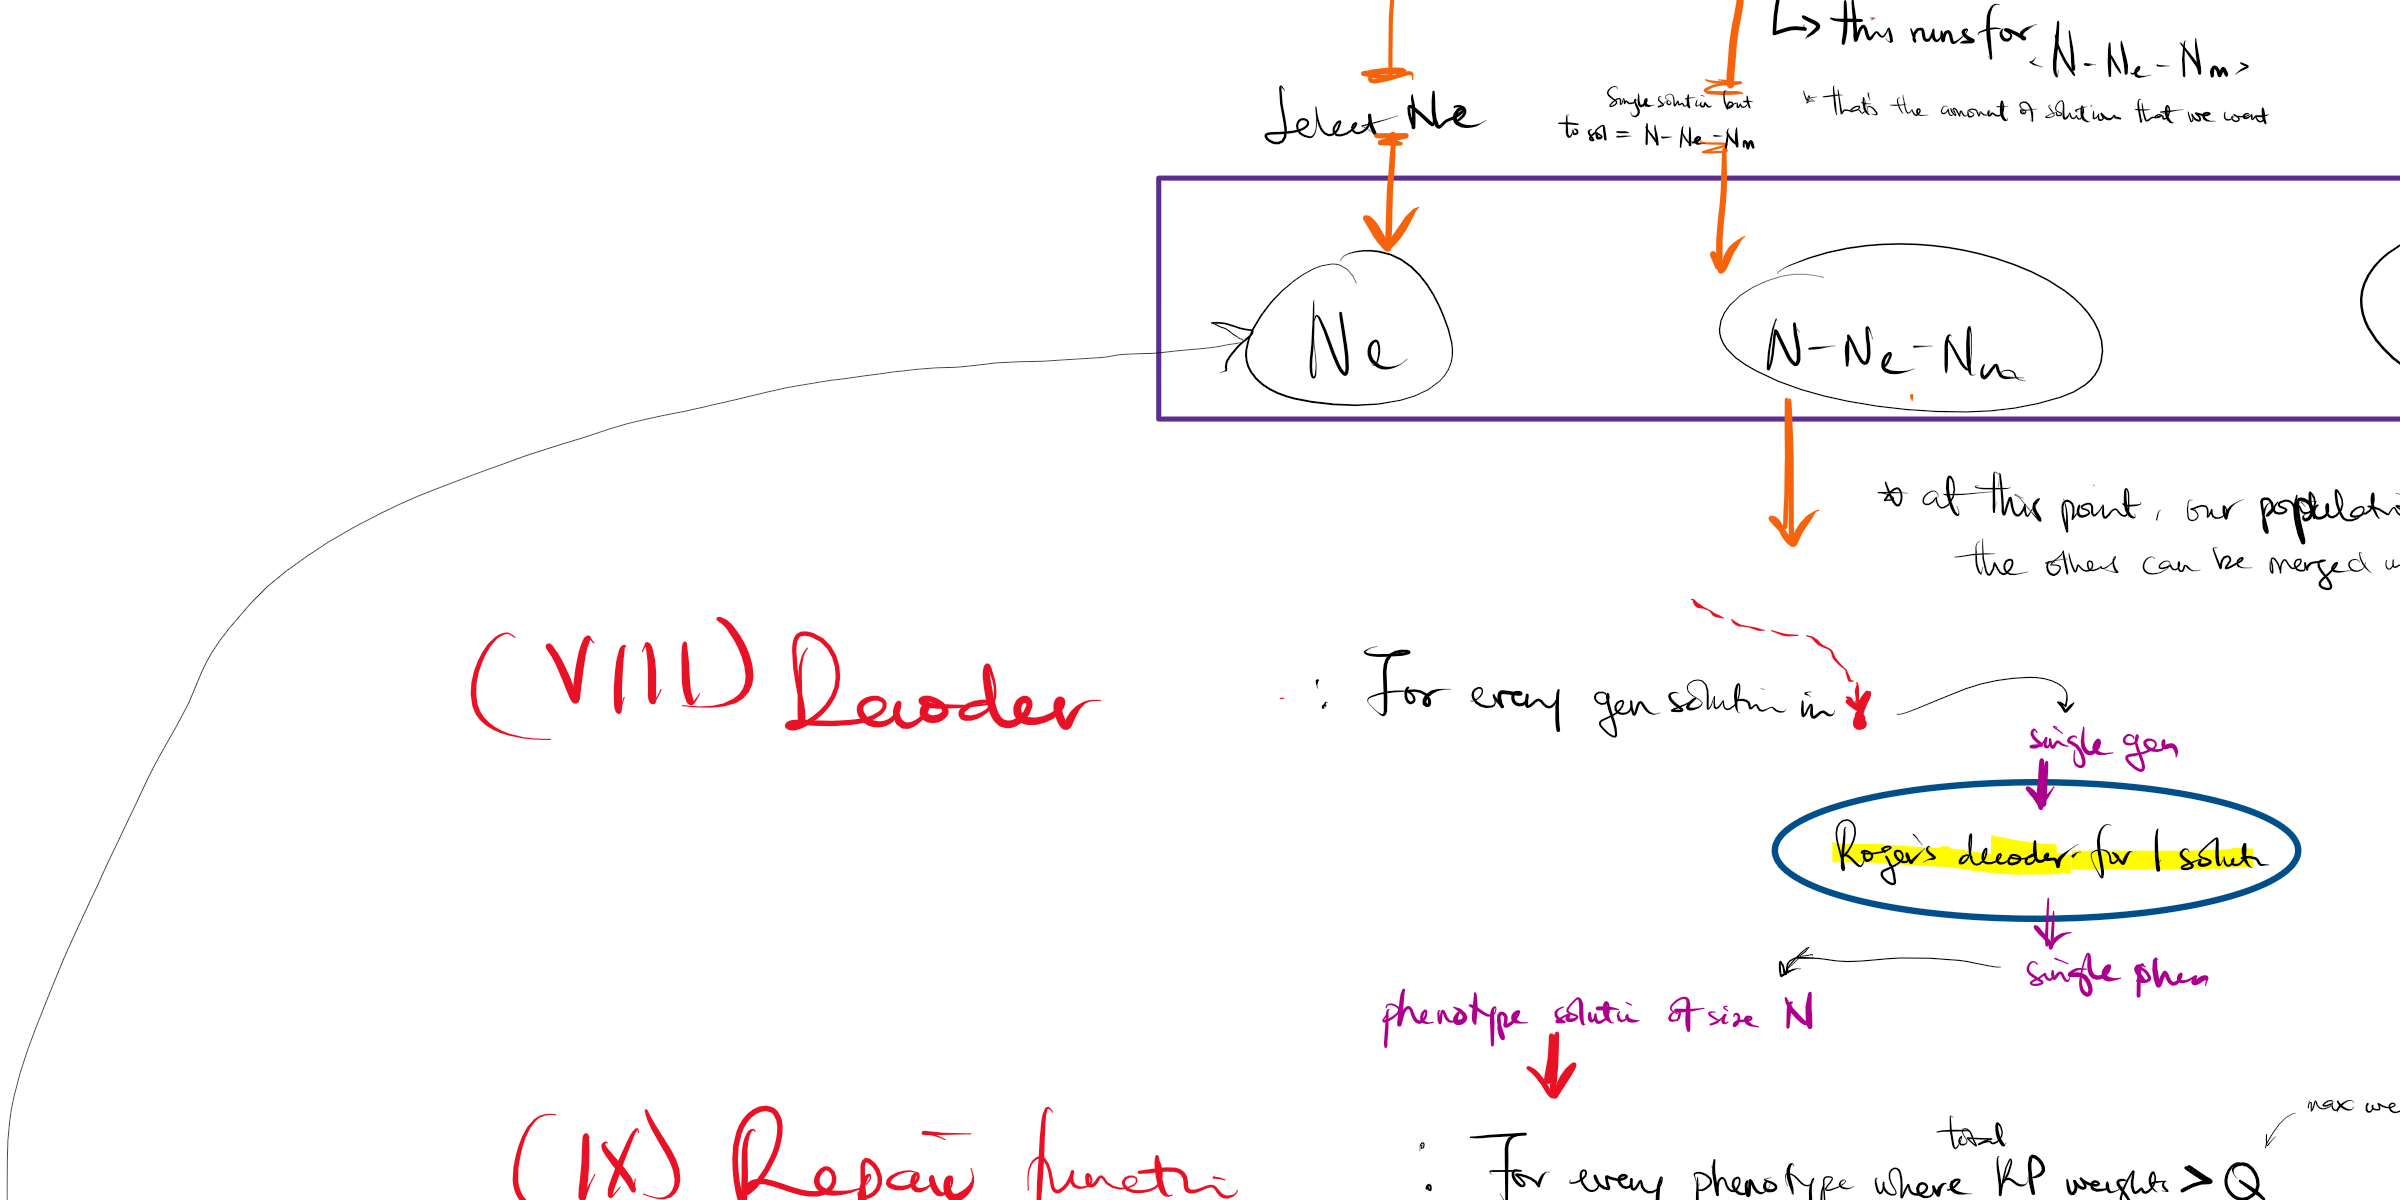 ↳ this runs for < N - Ne - Nm >
Select Ne
Single solution but
to sol = N - Ne - Nm
* that's the amount of solution that we want
Ne
N - Ne - Nm
* at this point, our populati
the others can be merged
(VIII) Decoder : For every gen solution in
single gen
Roger's decoder for 1 soluti
single phen
phenotype soluti of size N
max we
total
(IX) Repair functi : For every phenotype where KP weights > Q